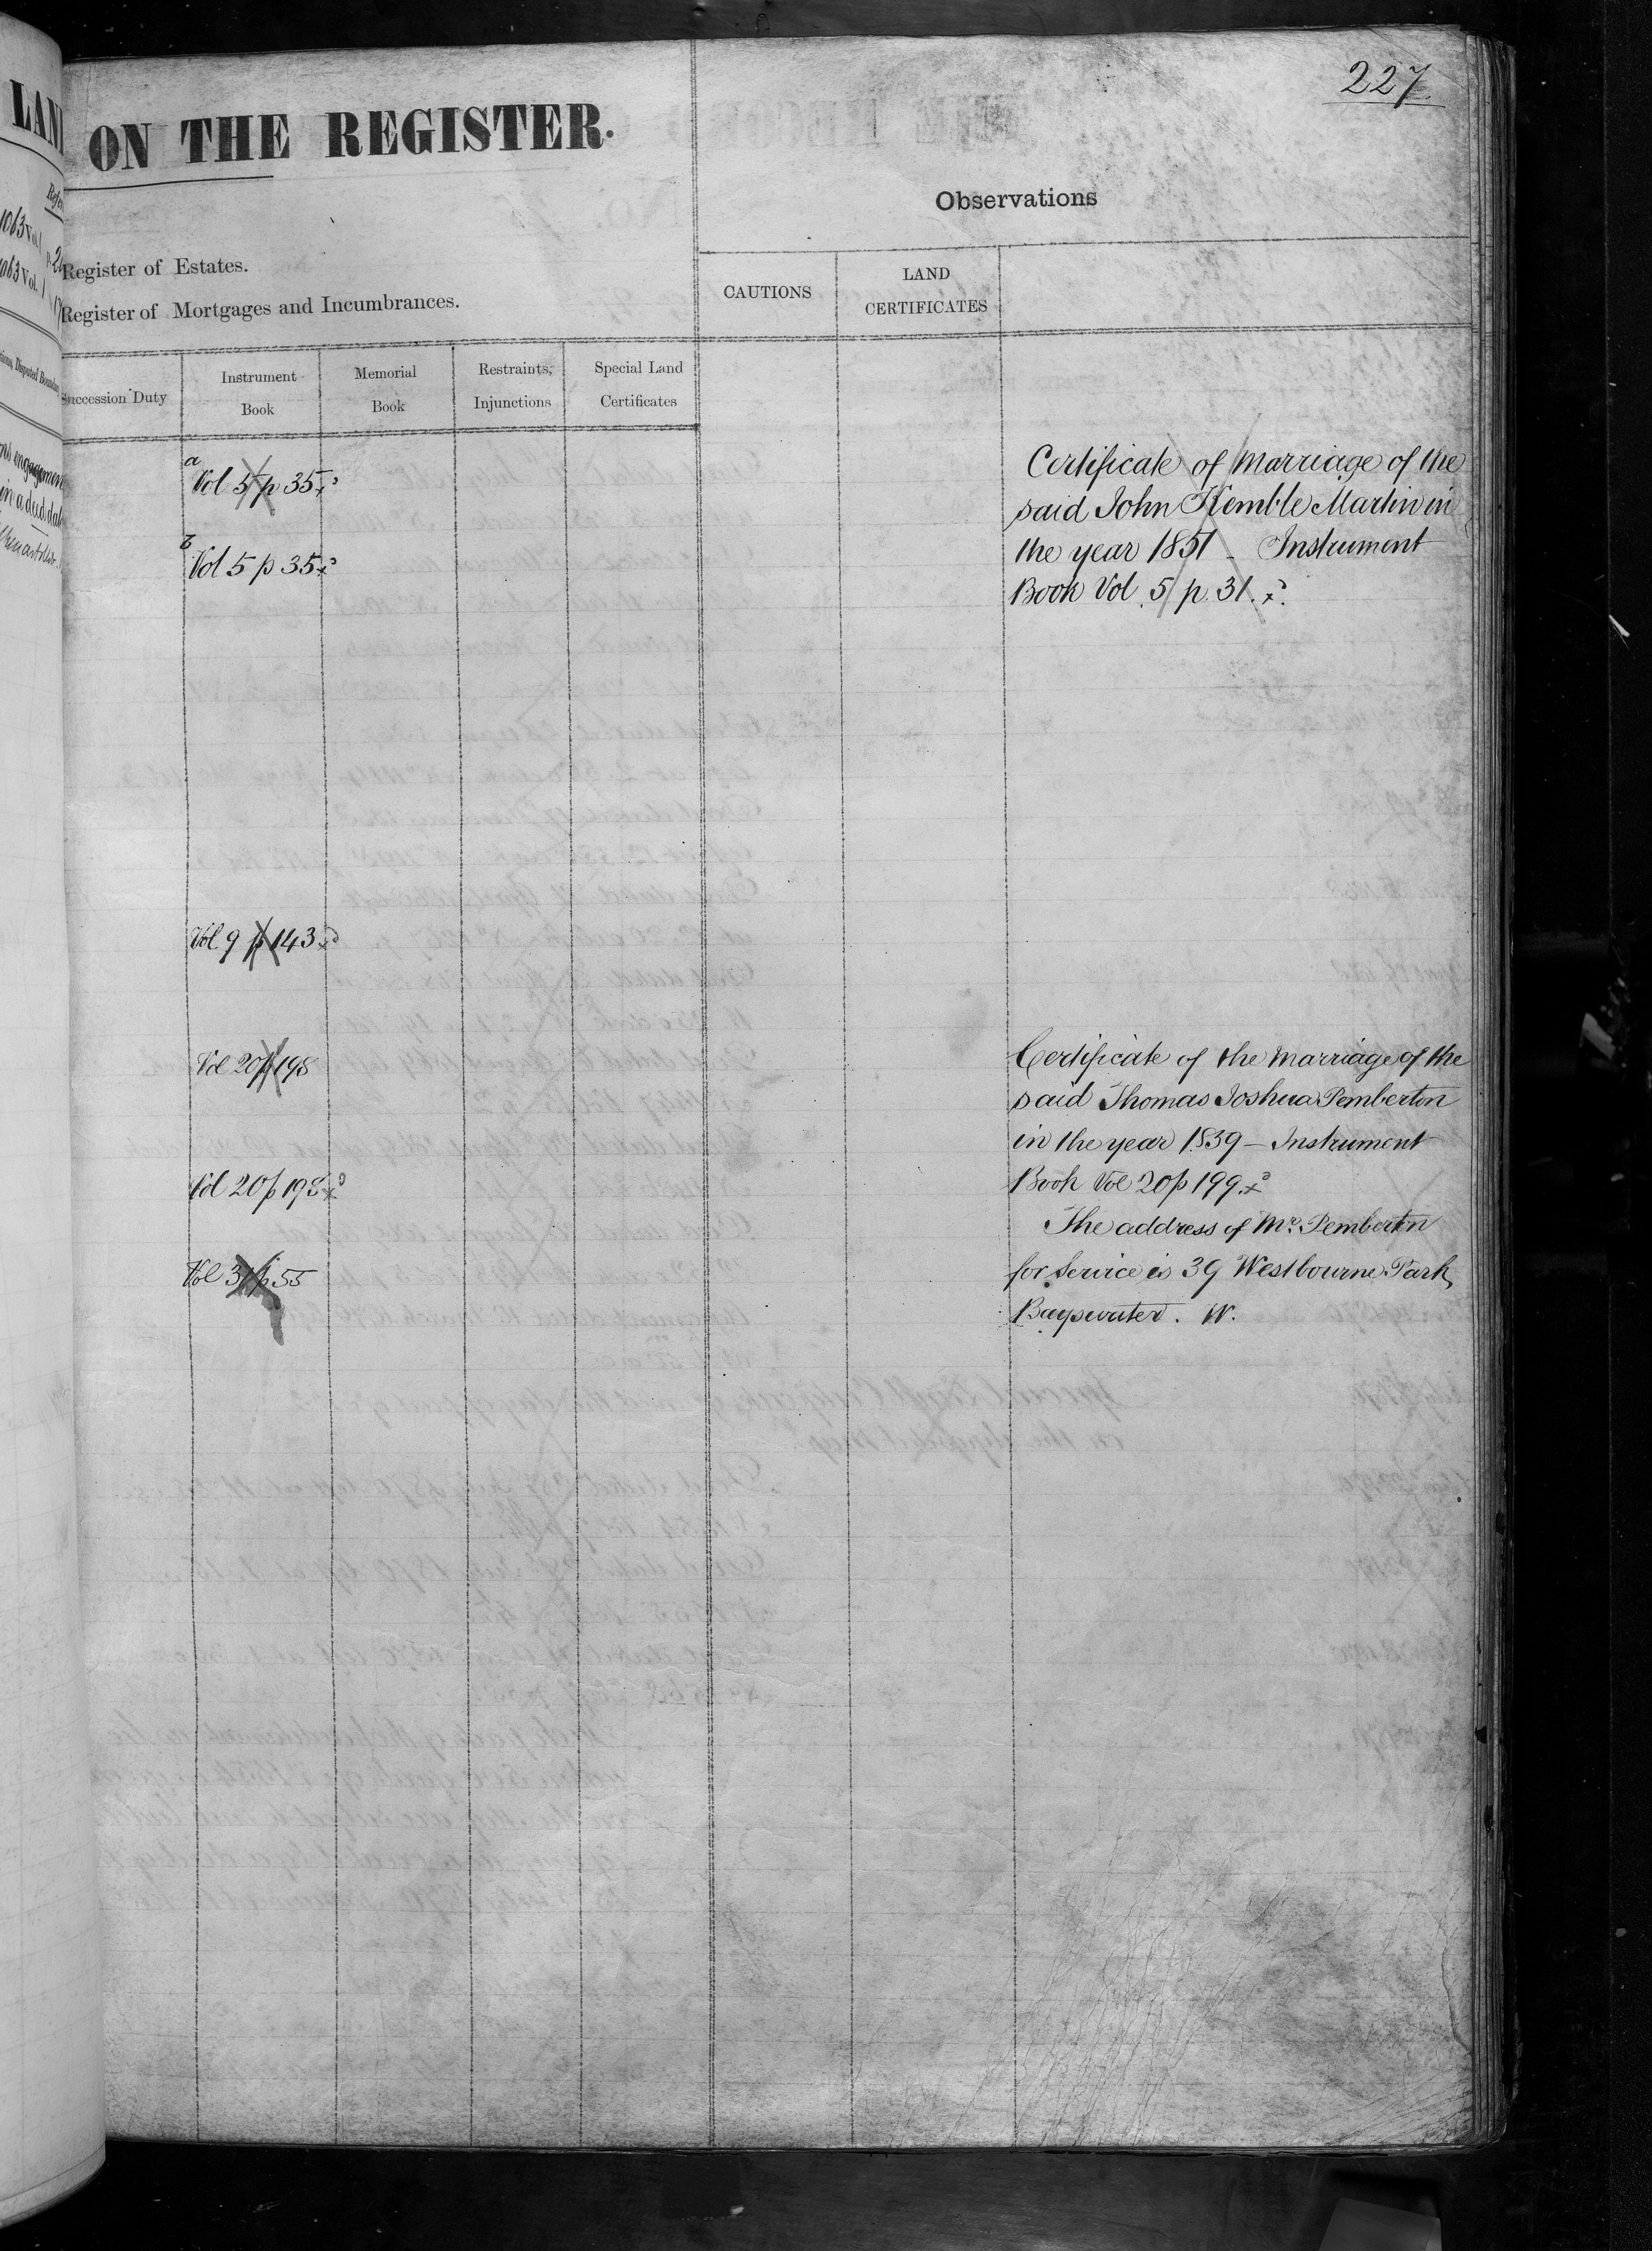 227
LAND
ON THE REGISTER.
Observations
Register of Estates.
Register of Mortgages and Incumbrances.
CAUTIONS
LAND
CERTIFICATES
Succession Duty
Instrument
Book
Memorial
Book
Restraints,
Injunctions
Special Land
Certificates
a
Vol 5 p 35
Certificate of Marriage of the
said John Kemble Martin in
b
Vol 5 p 35
the year 1851 - Instrument
Book Vol. 5 p. 31.
Vol 9 p 143
Vol 20 p 198
Certificate of the Marriage of the
said Thomas Joshua Pemberton
in the year 1839 - Instrument
Vol 20 p 198
Book Vol 20 p 199.
The address of Mr. Pemberton
Vol 31 p 55
for Service is 39 Westbourne Park
Bayswater. W.